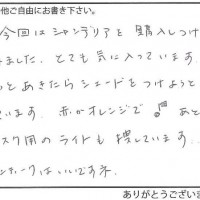 他ご自由にお書き下さい。
今回はシャンデリアを購入しつけ
ました、とても気に入っています.
っとあきたらシェードをつけようと
います. 赤かオレンジで♪ あと
スク用のライトも捜しています
はいいですネ
ありがとうござい